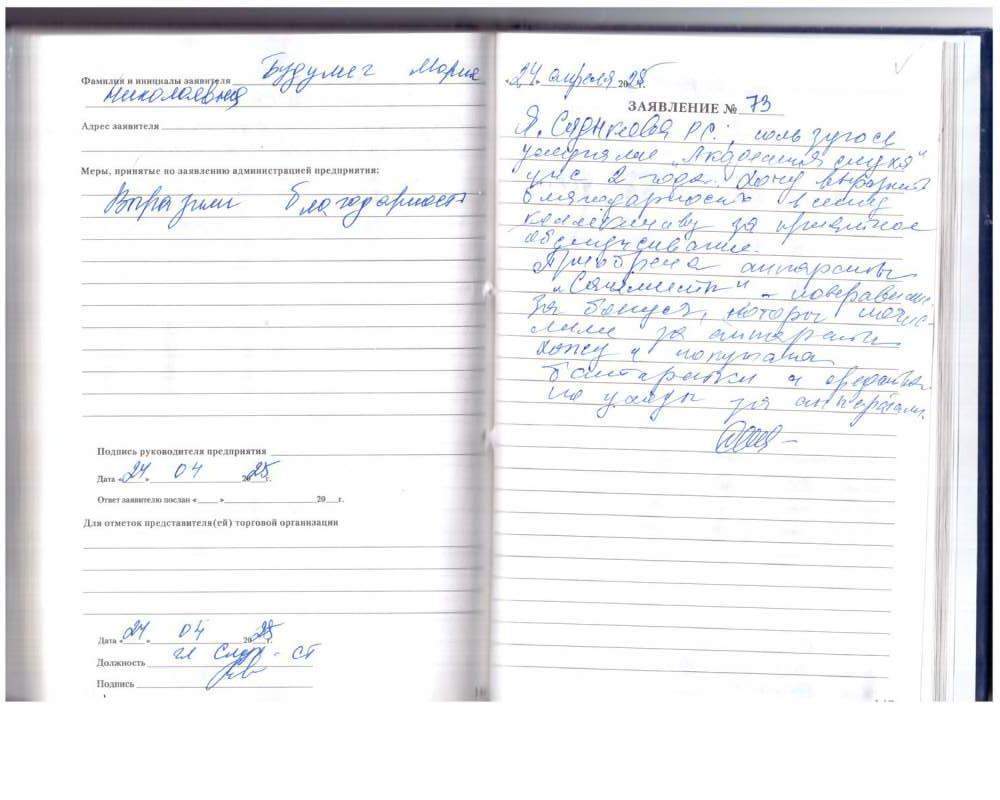 Фамилия и инициалы заявителя Будумег Мария
Николаевна
Адрес заявителя
Меры, принятые по заявлению администрацией предприятия:
Выразили благодарность
Подпись руководителя предприятия
Дата «24» 04 2025г.
Ответ заявителю послан «___» 20__г.
Для отметок представителя(ей) торговой организации
Дата «24» 04 2025г.
Должность гл
Подпись
«24» апреля 2025г.
ЗАЯВЛЕНИЕ № 73
Я, Р.С., пользуюсь
услугами „Академия слуха"
уже 2 года. Хочу выразить
благодарность всему
коллективу за приятное
обслуживание.
аппараты
За бонусы, которы начис-
лили за аппараты
хожу и
батарейки и средства
по уходу за аппаратами.